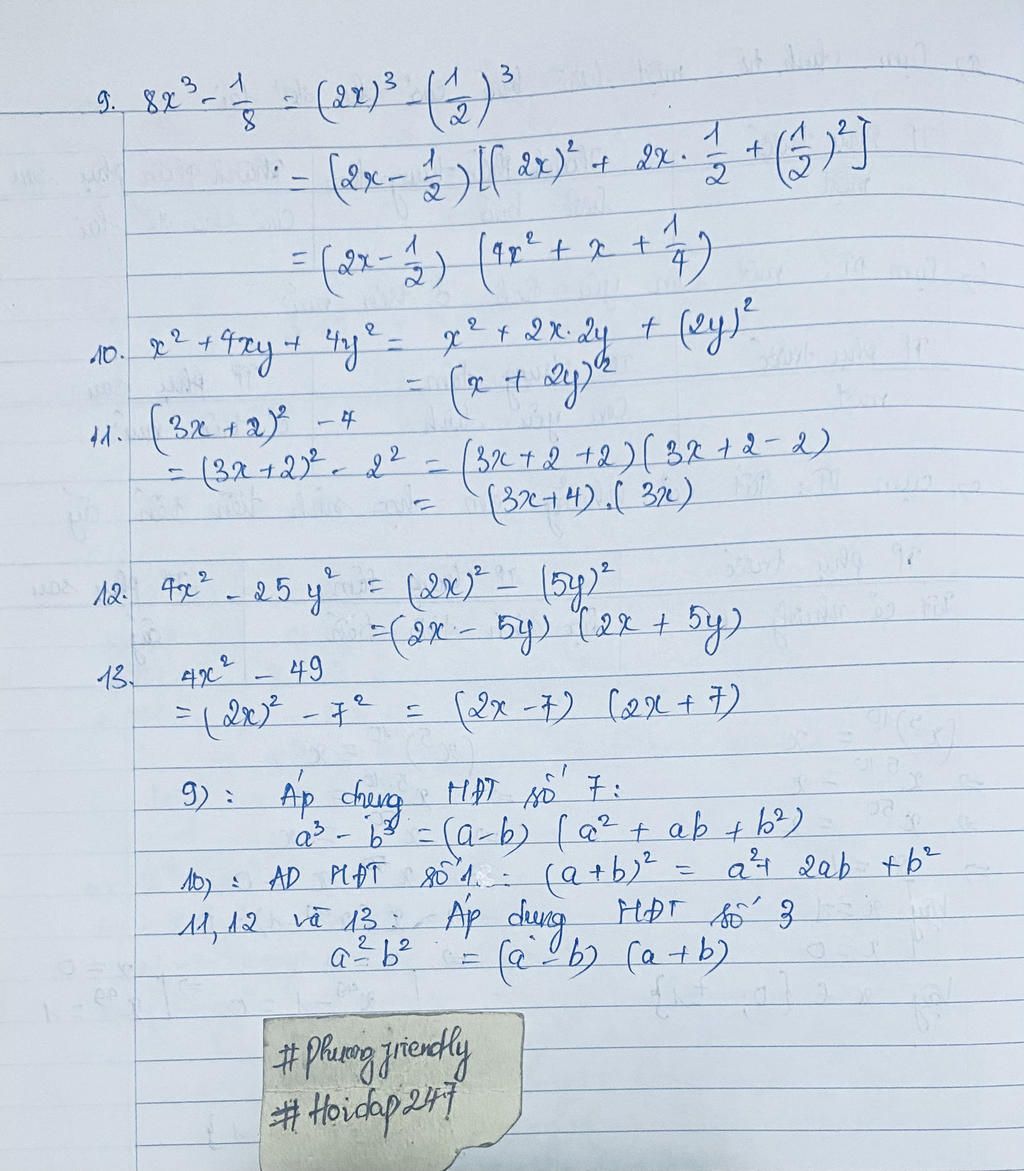 9. 8x³ - 1/8 = (2x)³ - (1/2)³
= (2x - 1/2) [(2x)² + 2x . 1/2 + (1/2)²]
= (2x - 1/2) (4x² + x + 1/4)
10. x² + 4xy + 4y² = x² + 2x.2y + (2y)²
= (x + 2y)²
11. (3x + 2)² - 4
= (3x + 2)² - 2² = (3x + 2 + 2) (3x + 2 - 2)
= (3x + 4) . (3x)
12. 4x² - 25y² = (2x)² - (5y)²
= (2x - 5y) (2x + 5y)
13. 4x² - 49
= (2x)² - 7² = (2x - 7) (2x + 7)
9) : Áp dụng HĐT số 7 :
a³ - b³ = (a - b) (a² + ab + b²)
10) : AD HĐT số 1 : (a + b)² = a² + 2ab + b²
11, 12 và 13 : Áp dụng HĐT số 3
a² - b² = (a - b) (a + b)
#Phuongfriendly
#Hoidap247